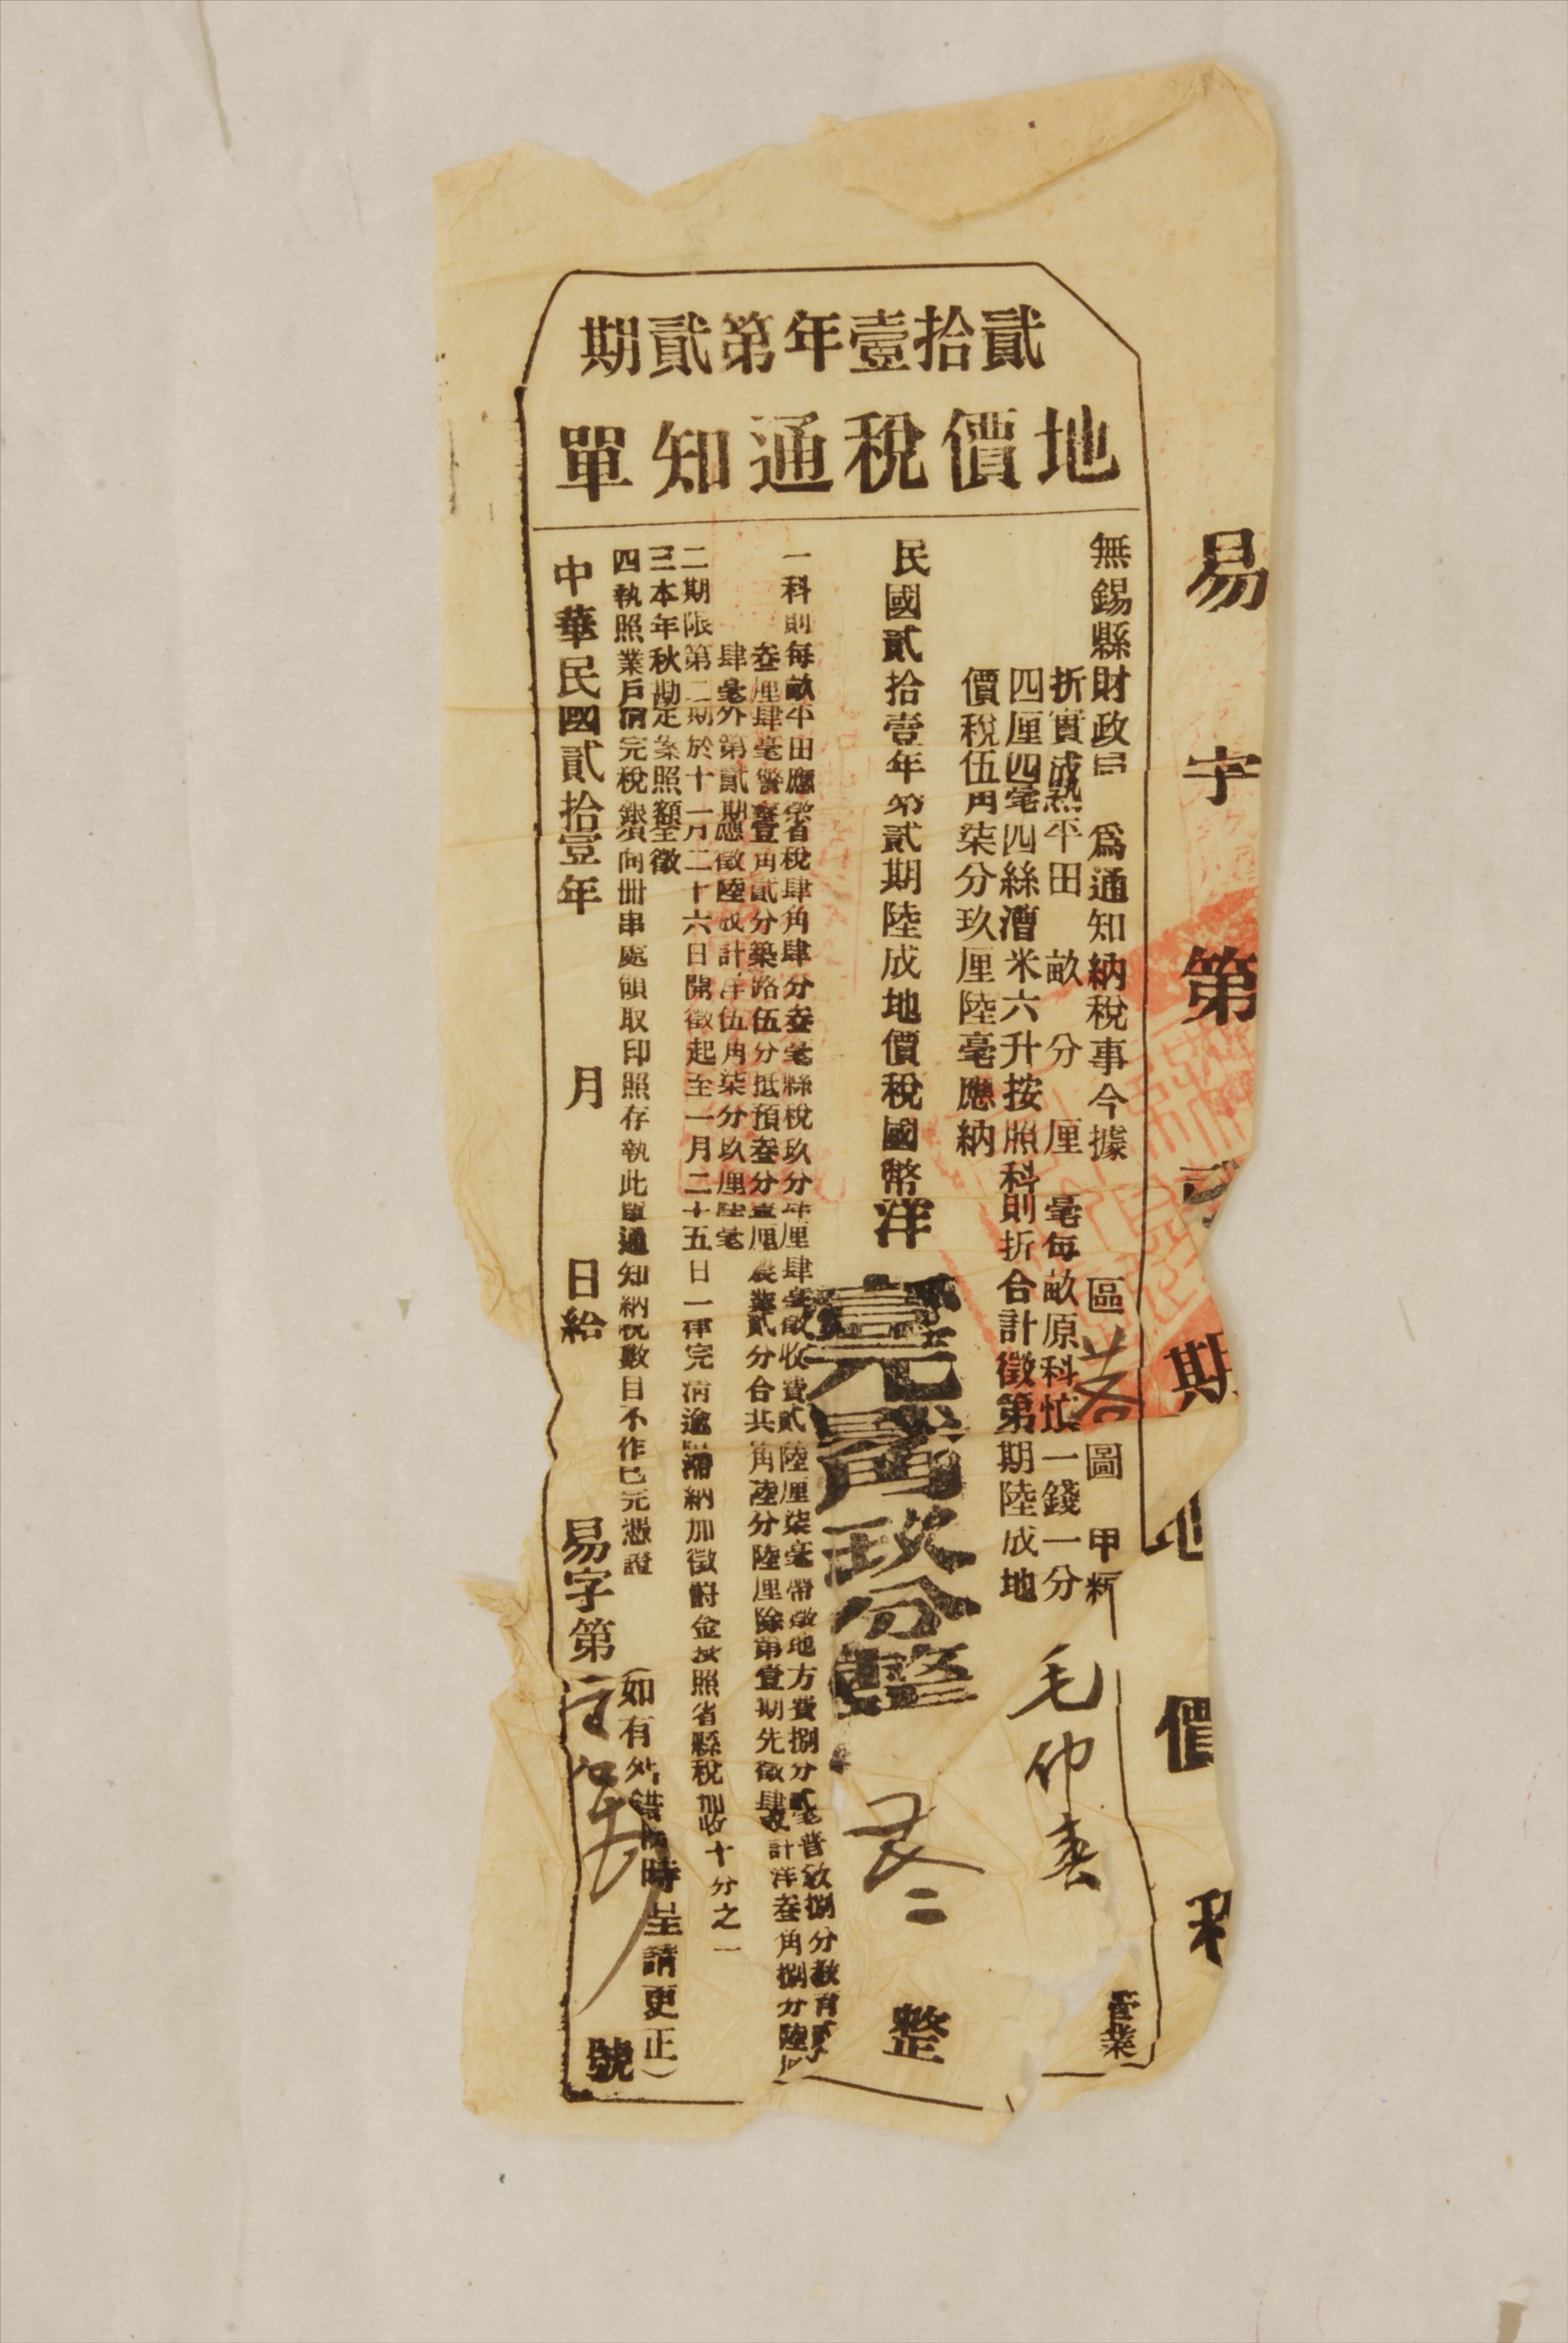 貳拾壹年第貳期
地價稅通知單
易字第 期地價稅
無錫縣財政局 為通知納稅事今據 區 圖 甲 毛仲 管業
折實成熟平田 畝 分 厘 毫每畝原科忙一錢一分
四厘四毫四絲漕米六升按照科則折合計徵第 期陸成地
價稅伍角柒分玖厘陸毫應納
民國貳拾壹年第貳期陸成地價稅國幣洋壹元 角玖分整 整
一科則每畝平田應徵省稅肆角肆分叁毫縣稅玖分 厘肆毫徵收費貳 陸厘柒毫帶徵地方費捌分 毫普教捌分教育
叁厘肆毫警察壹角貳分築路伍分抵預叁分 厘農業貳分合共 角陸分陸厘除第壹期先徵肆成計洋叁角捌分陸厘
肆毫外第貳期應徵陸成計洋伍角柒分玖厘陸毫
二期限第二期於十一月二十六日開徵起至一月二十五日一律完清逾限滯納加徵罰金按照省縣稅加收十分之一
三本年秋勘定案照額全徵
四執照業戶清完稅銀須向冊串處領取印照存執此單通知納稅數目不作已完憑證 （如有外錯隨時呈請更正）
中華民國貳拾壹年 月 日給 易字第 號